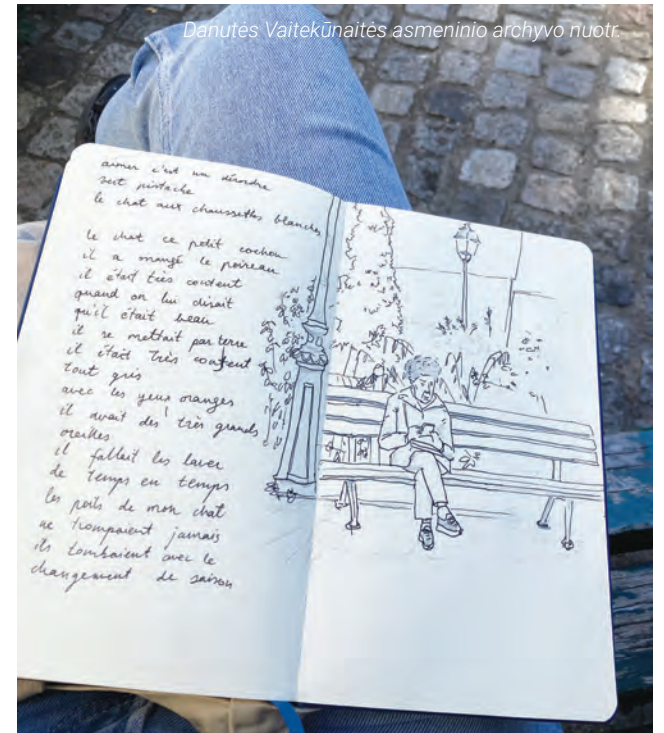 Danutės Vaitekūnaitės asmeninio archyvo nuotr.
aimer c'est un désordre
vert pistache
le chat aux chaussettes blanches
le chat ce petit cochon
il a mangé le poireau
il était très content
quand on lui disait
qu'il était beau
il se mettait par terre
il était très content
tout gris
avec les yeux oranges
il avait des très grands
oreilles
il fallait les laver
de temps en temps
les poils de mon chat
ne trompaient jamais
ils tombaient avec le
changement de saison